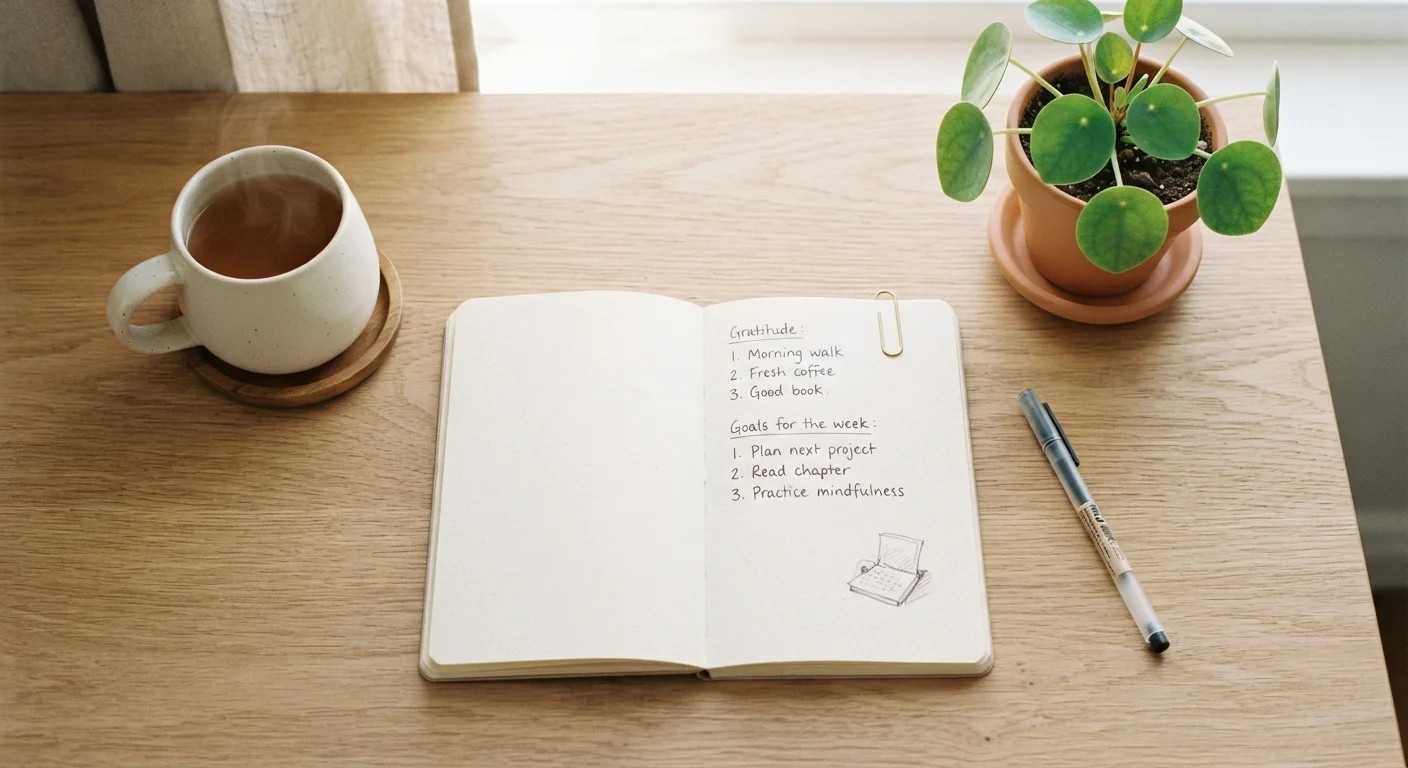 Gratitude:
1. Morning walk
2. Fresh coffee
3. Good book.
Goals for the week:
1. Plan next project
2. Read chapter
3. Practice mindfulness